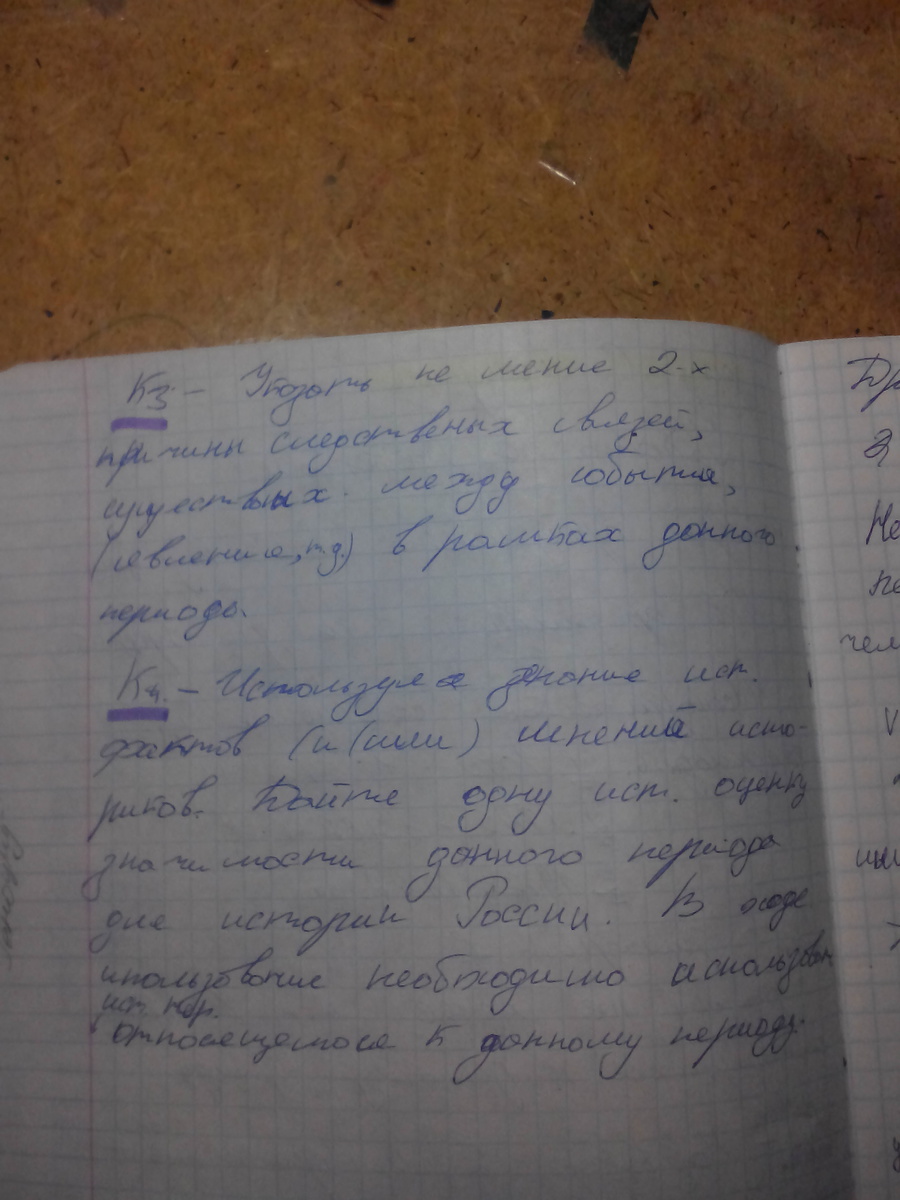 К3. – Указать не мение 2-х
причины следственых связей,
существых. между событиа,
(явление, т.д.) в рамках данного
периода.
К4. – Используя знание ист.
фактов (и (или) мнений исто-
риков. Дайте одну ист. оценку
значимости данного периода
для истории России. В ходе
ипользование необходимо использован
ист.
относещемося к данному периоду.
Др
З
Не
пе
чем